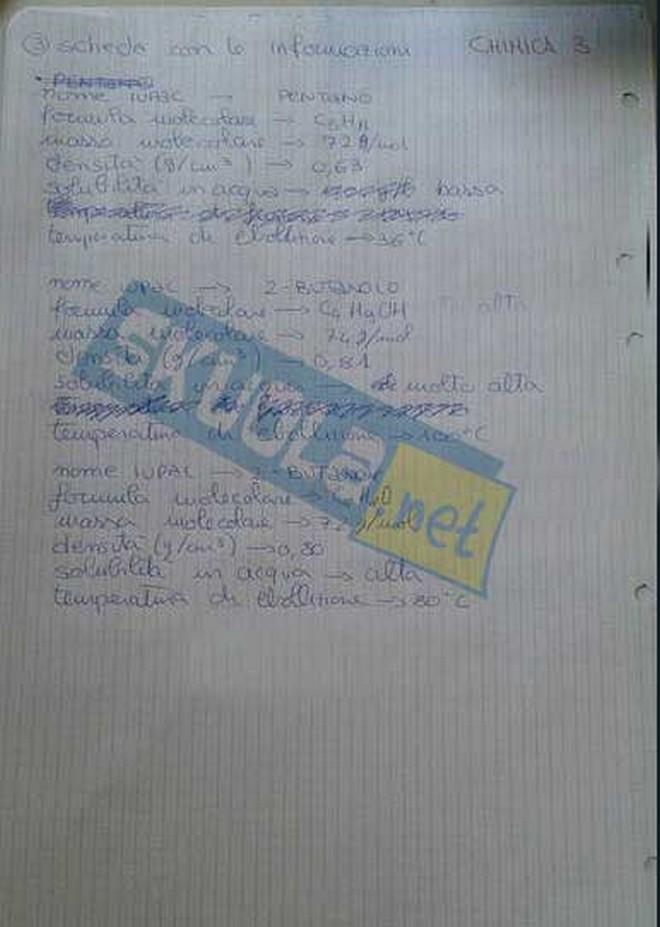 ③ scheda con le informazioni CHIMICA 3
• PENTANO
nome IUPAC → PENTANO
formula molecolare → C5H12
massa molecolare → 72 g/mol
densità (g/cm³) → 0,63
solubilità in acqua → bassa
temperatura di ebollizione → 36°C
nome IUPAC → 2-BUTANOLO
formula molecolare → C4H9OH alta
massa molecolare → 74 g/mol
densità (g/cm³) → 0,81
solubilità in acqua → molto alta
temperatura di ebollizione → 100°C
nome IUPAC → 2-BUTANONE
formula molecolare → C4H8O
massa molecolare → 72 g/mol
densità (g/cm³) → 0,80
solubilità in acqua → alta
temperatura di ebollizione → 80°C
SKUOLA.net